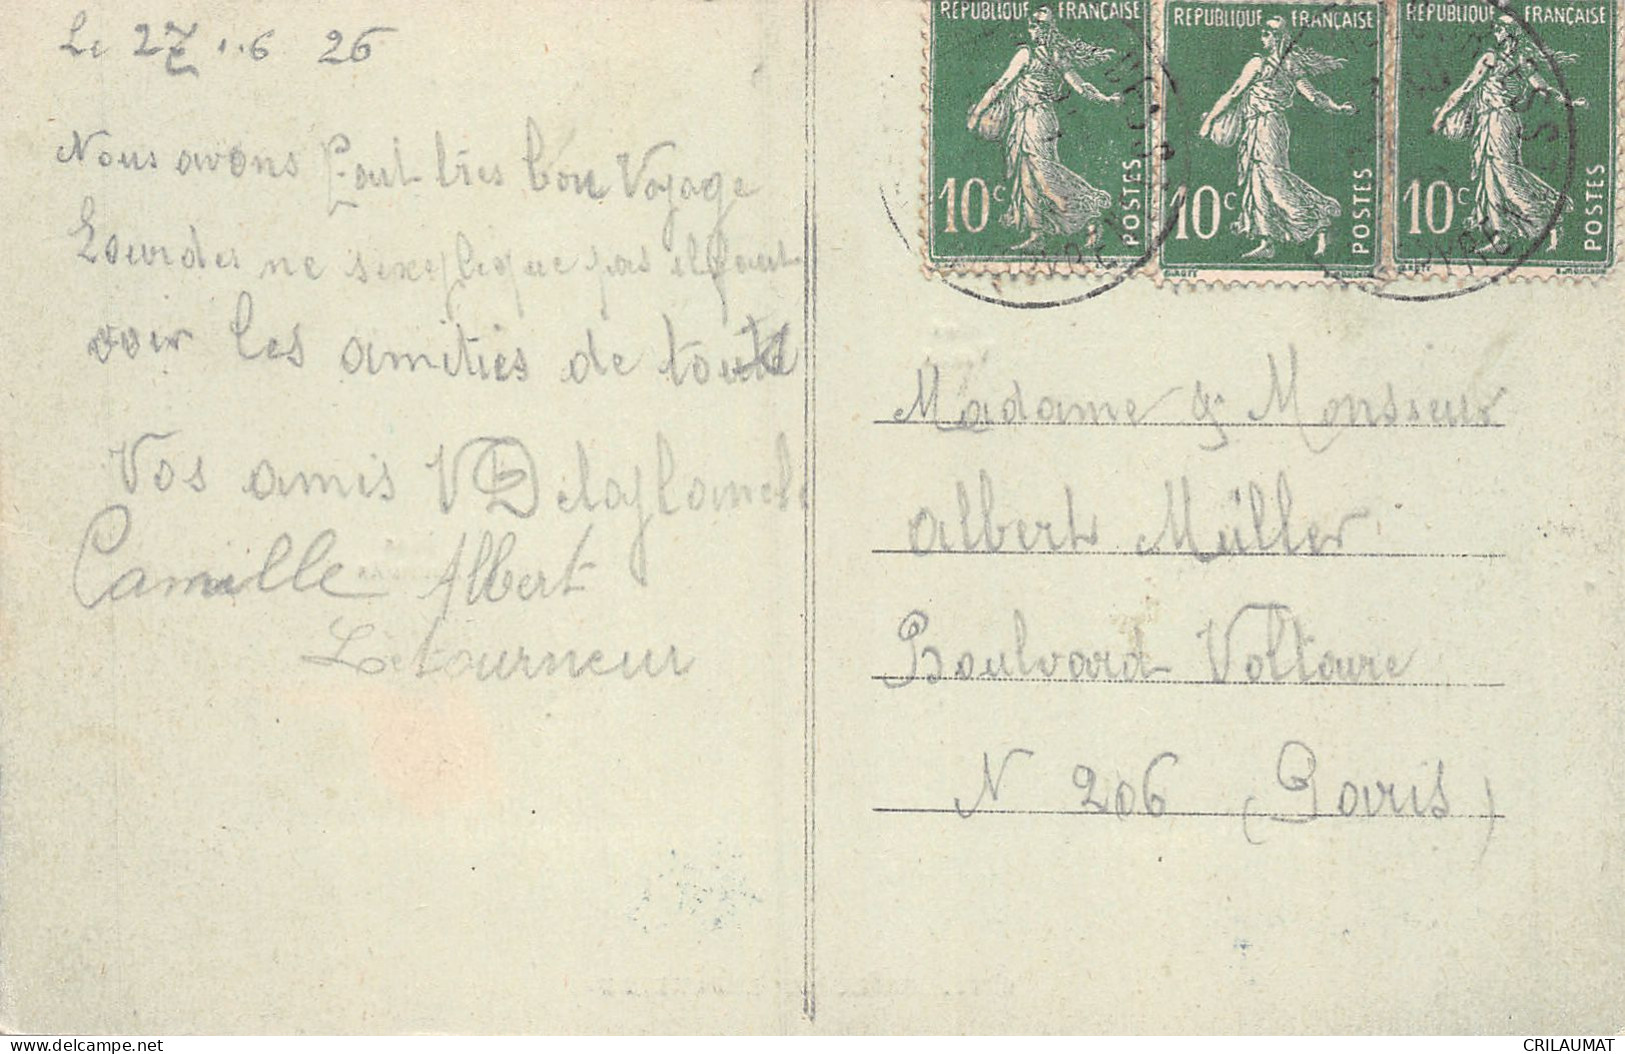 Le 27 .. 6 26
Nous avons fait très bon Voyage
Lourdes ne sexeplique pas il faut
voir les amitiés de toute
Vos amis V Delaglomele
Camille Albert
Letourneur
REPUBLIQUE FRANÇAISE
10c POSTES
REPUBLIQUE FRANÇAISE
10c POSTES
REPUBLIQUE FRANÇAISE
10c POSTES
Madame & Monsieur
Albert Müller
Boulvard Voltaire
N 206 (Paris)
CRILAUMAT